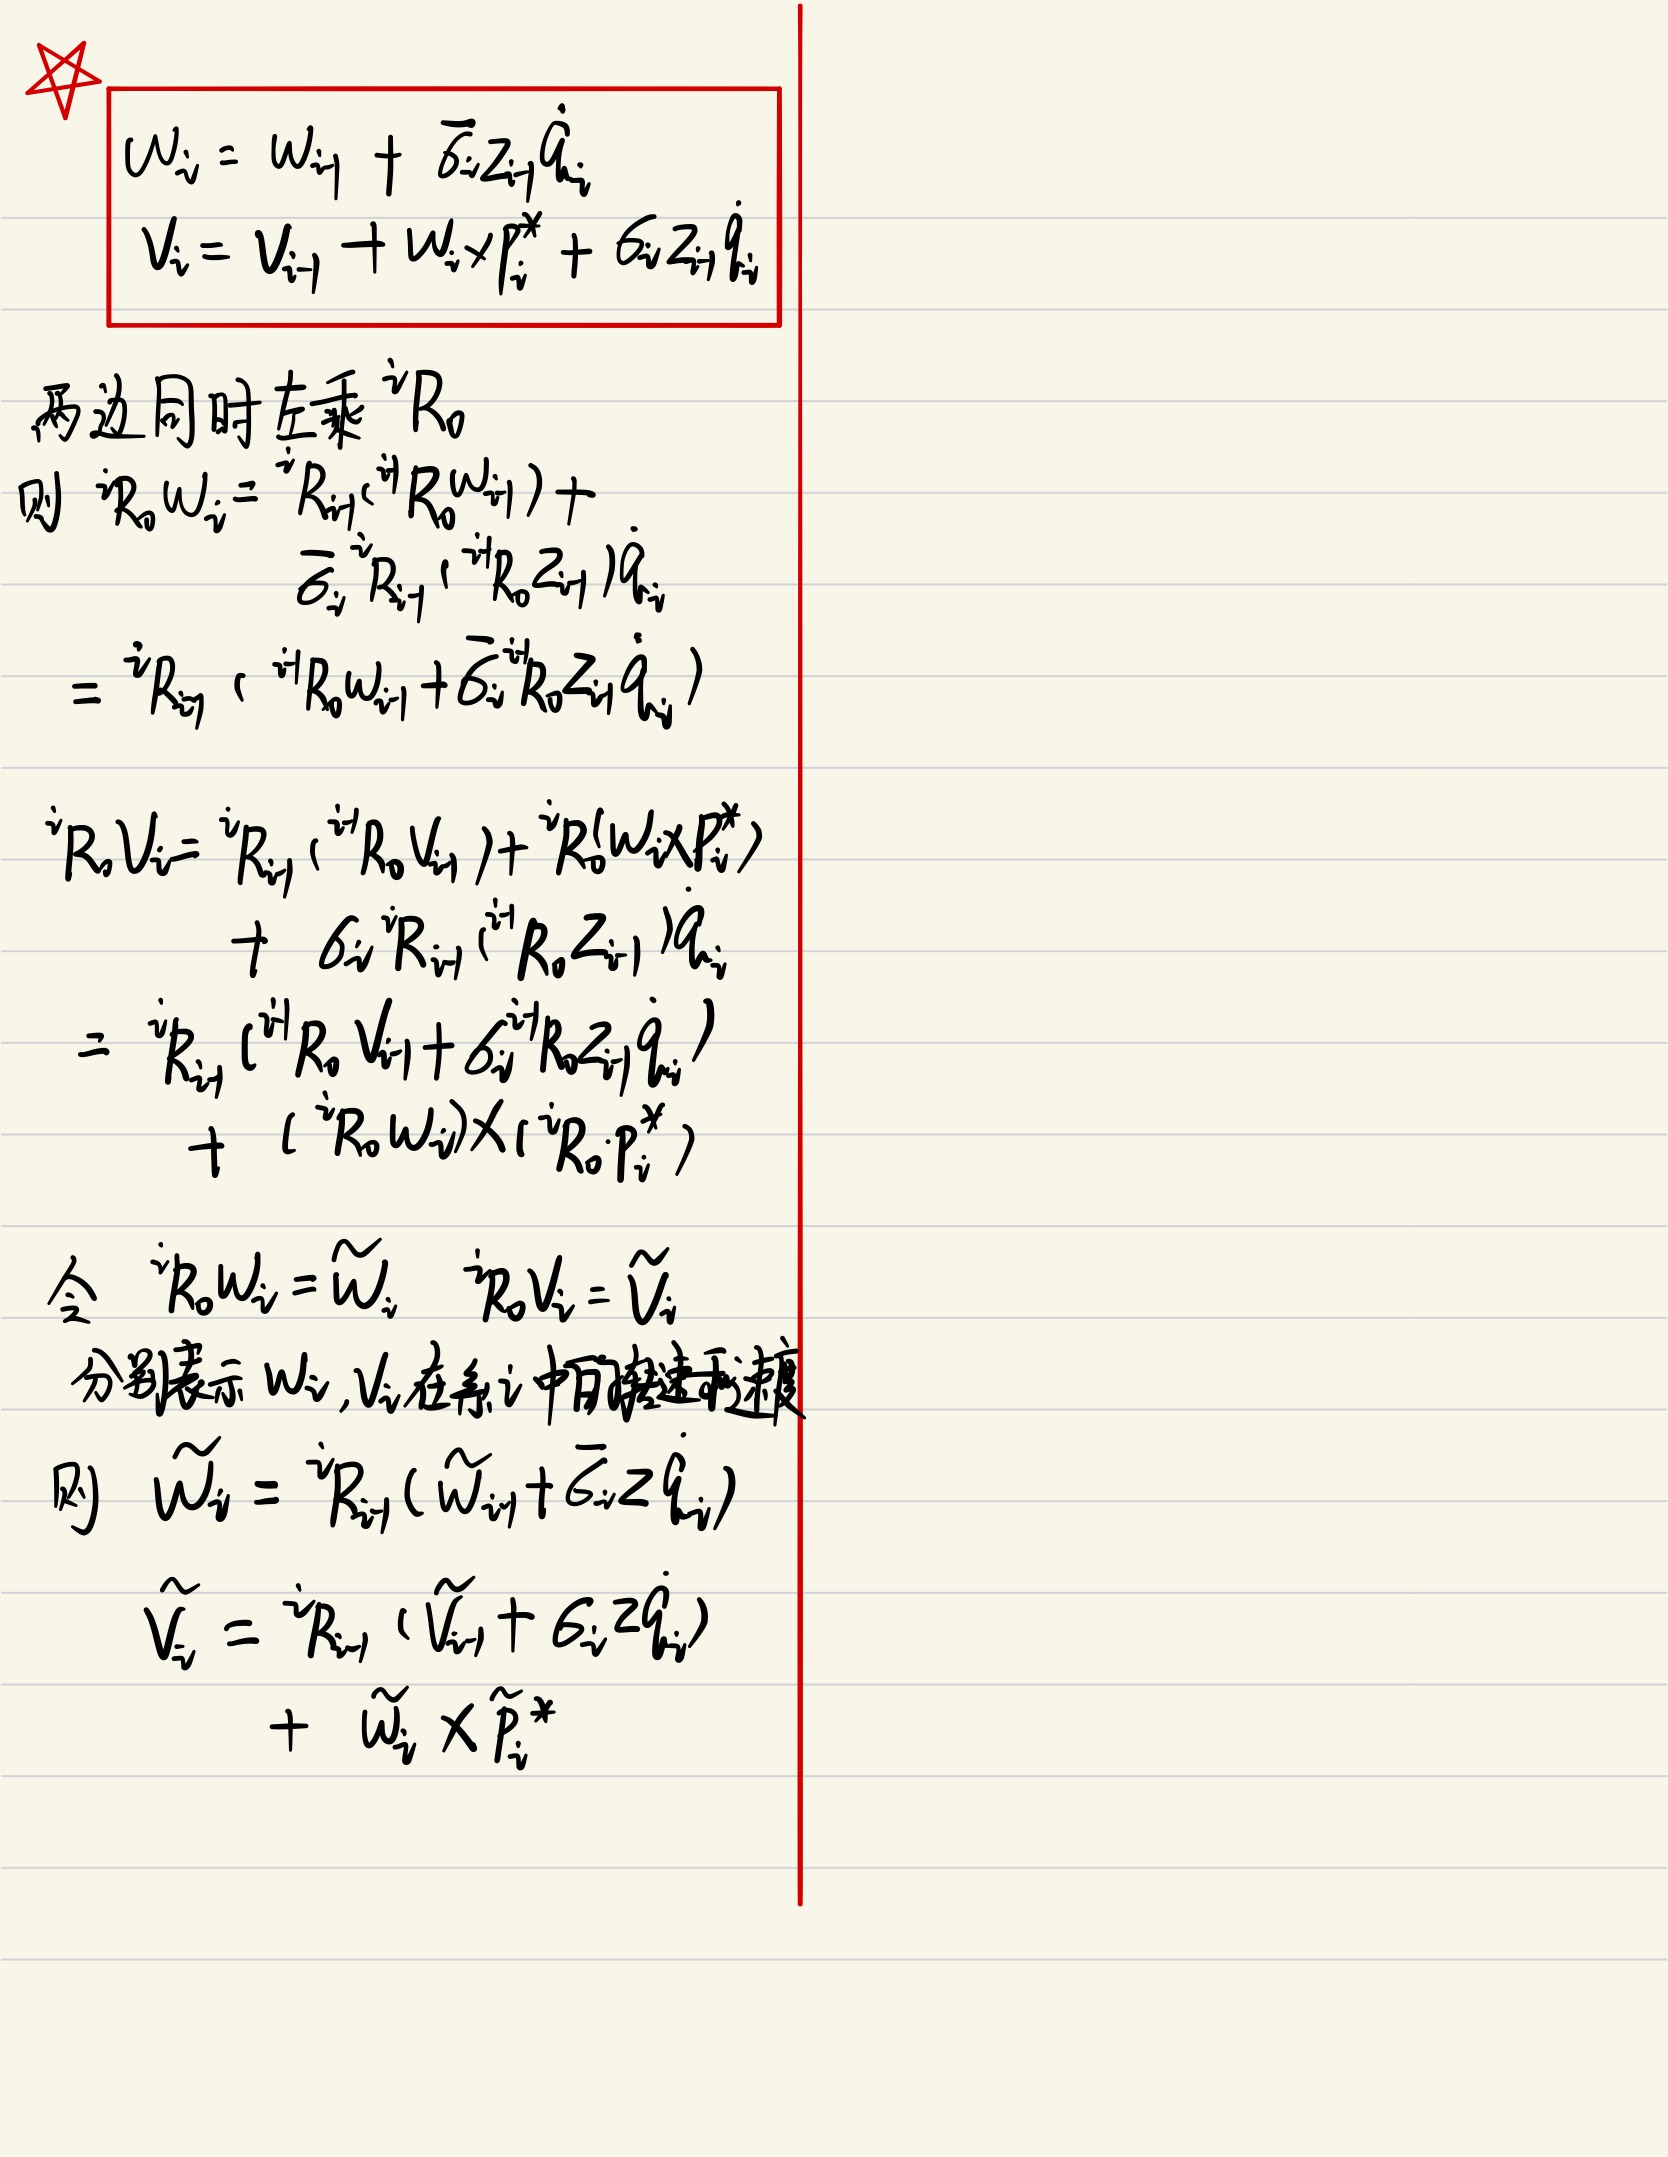 ωᵢ = ωᵢ₋₁ + σ̄ᵢzᵢ₋₁q̇ᵢ
Vᵢ = Vᵢ₋₁ + ωᵢ×pᵢ* + σᵢzᵢ₋₁q̇ᵢ
两边同时左乘 ⁱR₀
则 ⁱR₀ωᵢ = ⁱRᵢ₋₁(ⁱ⁻¹R₀ωᵢ₋₁) +
σ̄ᵢ ⁱRᵢ₋₁(ⁱ⁻¹R₀zᵢ₋₁)q̇ᵢ
= ⁱRᵢ₋₁(ⁱ⁻¹R₀ωᵢ₋₁ + σ̄ᵢ ⁱ⁻¹R₀zᵢ₋₁q̇ᵢ)
ⁱR₀Vᵢ = ⁱRᵢ₋₁(ⁱ⁻¹R₀Vᵢ₋₁) + ⁱR₀(ωᵢ×pᵢ*)
+ σᵢ ⁱRᵢ₋₁(ⁱ⁻¹R₀zᵢ₋₁)q̇ᵢ
= ⁱRᵢ₋₁(ⁱ⁻¹R₀Vᵢ₋₁ + σᵢ ⁱ⁻¹R₀zᵢ₋₁q̇ᵢ)
+ (ⁱR₀ωᵢ)×(ⁱR₀·pᵢ*)
令 ⁱR₀ωᵢ = ω̃ᵢ ⁱR₀Vᵢ = Ṽᵢ
分别表示 ωᵢ, Vᵢ 在系 i 中的转速和速度
则 ω̃ᵢ = ⁱRᵢ₋₁(ω̃ᵢ₋₁ + σ̄ᵢzq̇ᵢ)
Ṽᵢ = ⁱRᵢ₋₁(Ṽᵢ₋₁ + σᵢzq̇ᵢ)
+ ω̃ᵢ × p̃ᵢ*